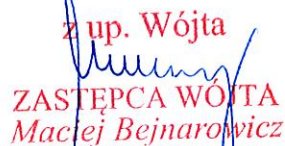 z up. Wójta
ZASTĘPCA WÓJTA
Maciej Bejnarowicz